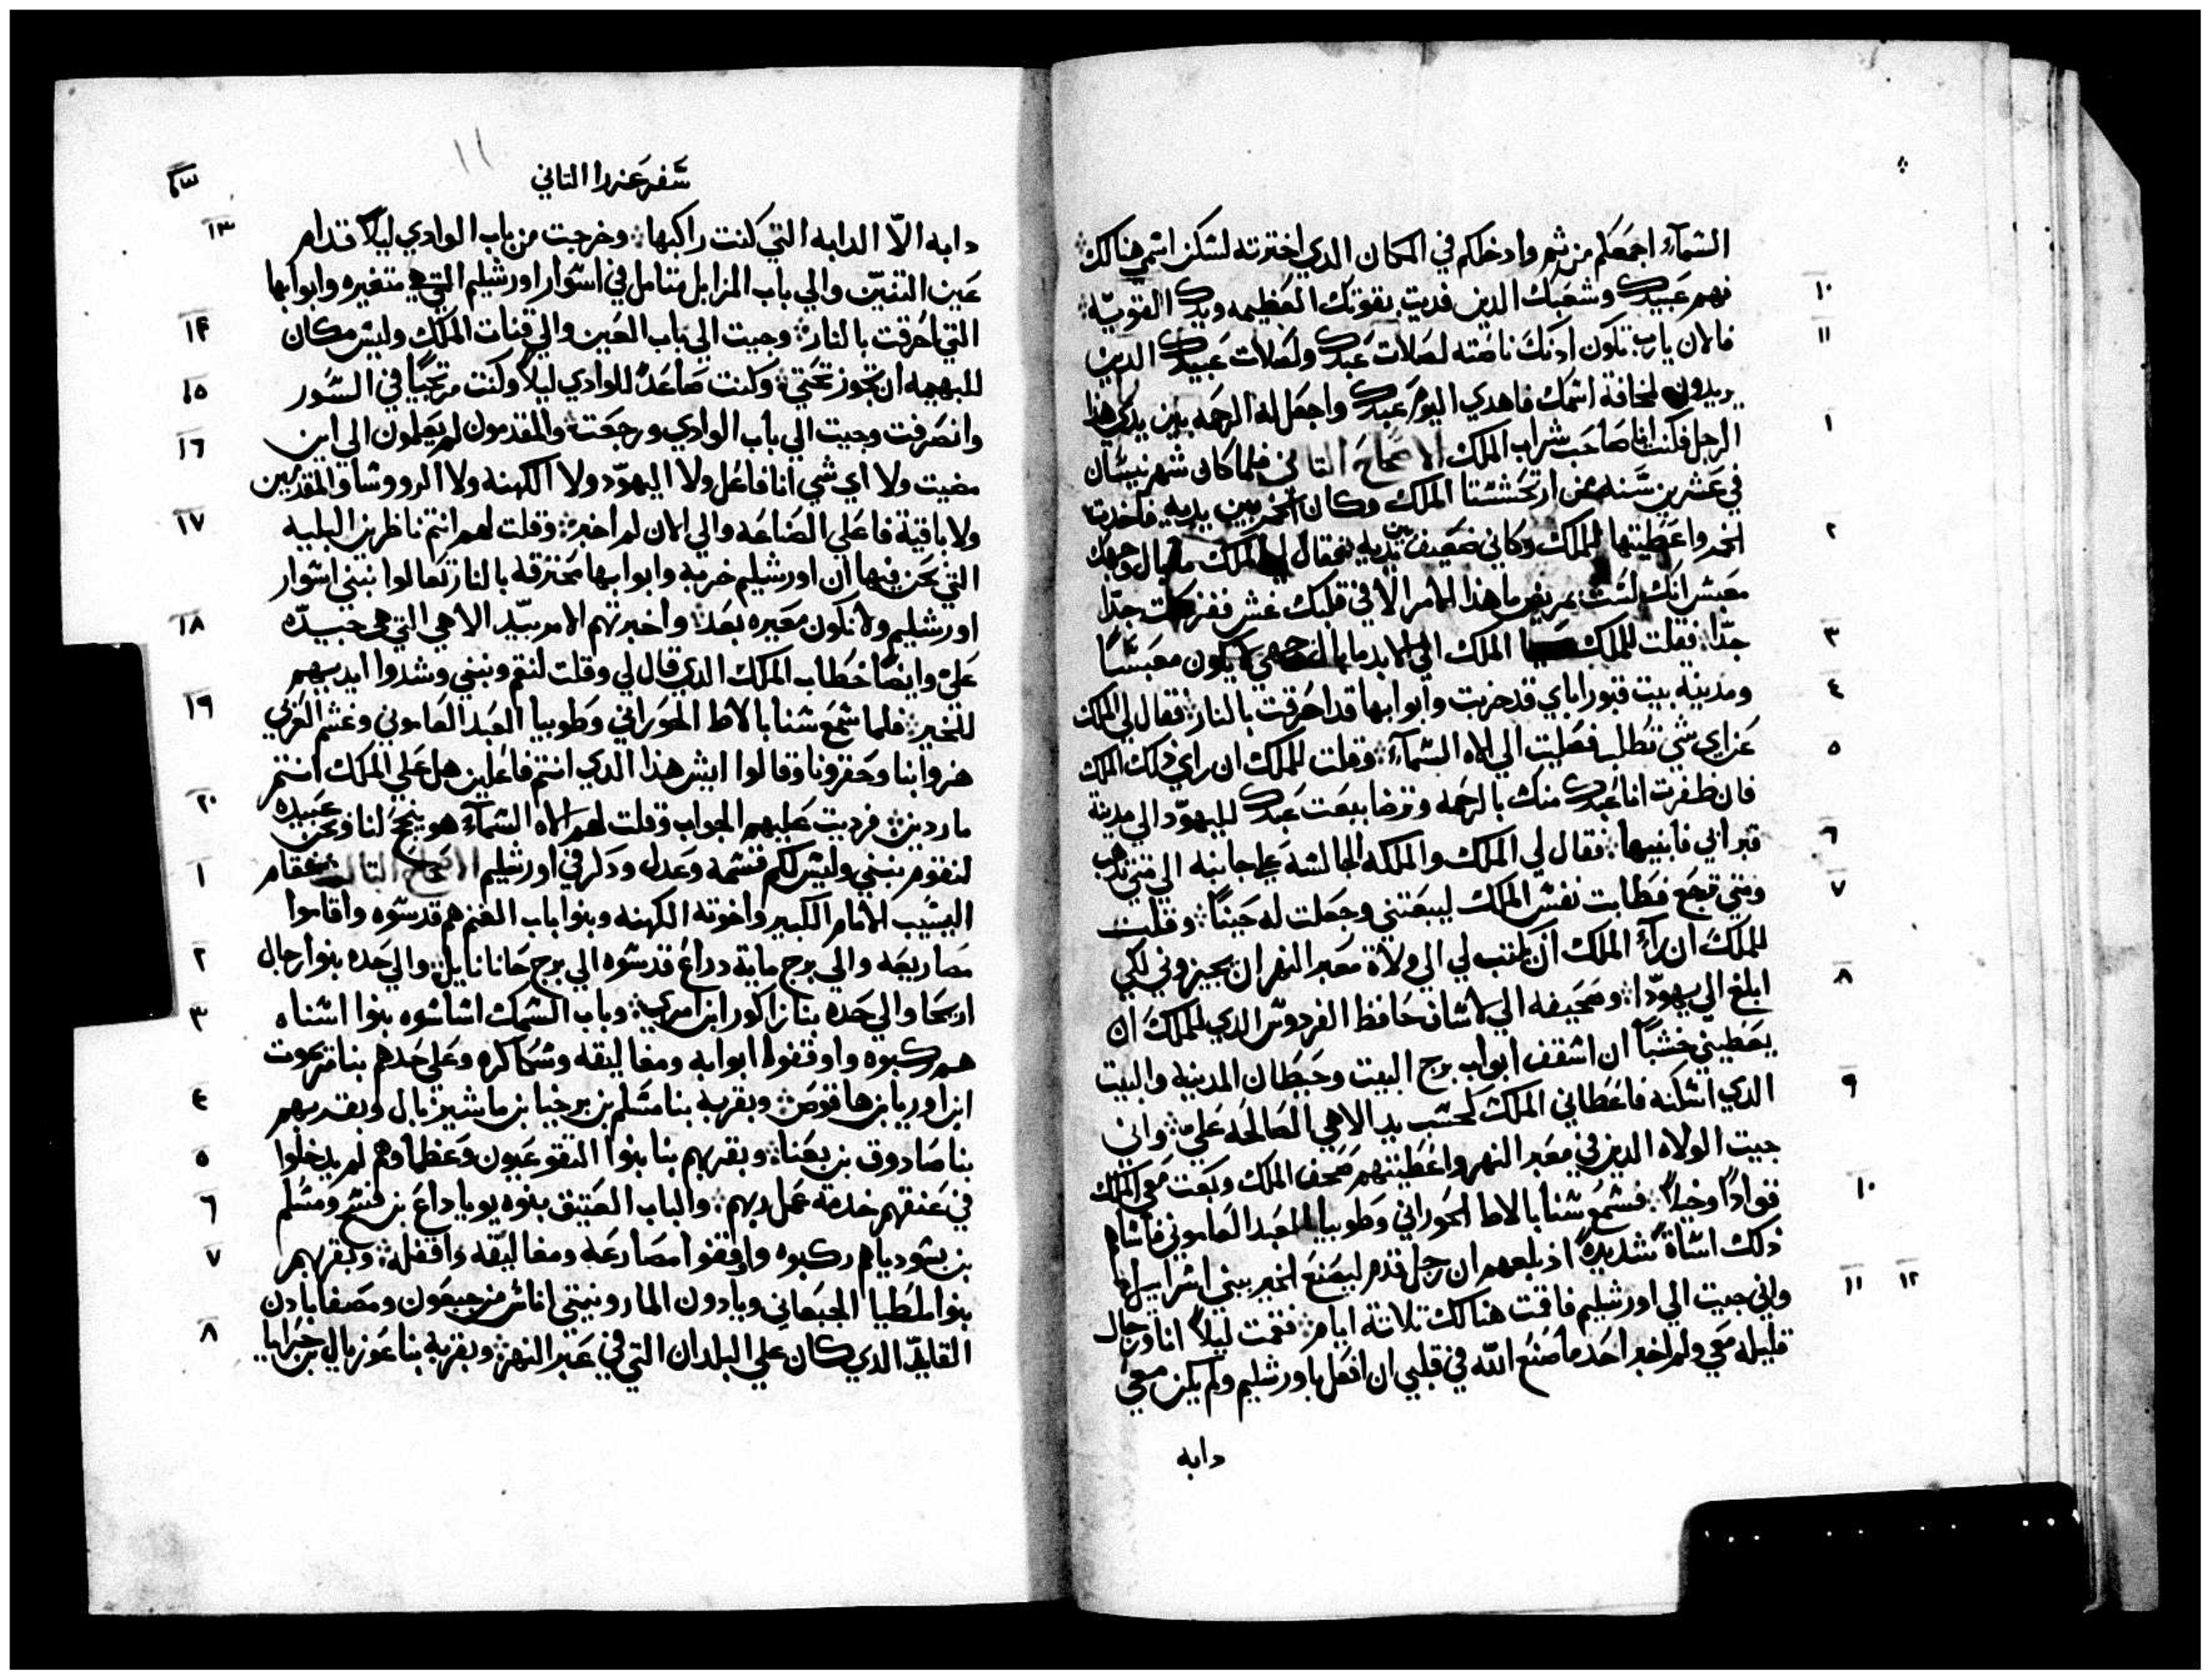 السمآء اجمعكم من ثم وادخلكم في المكان الدي اخترته لسكن اسمي هنالك
١٠ فهم عبيدك وشعبك الدين فديت بقوتك العظيمه ويدك القويّه
١١ فالان يارب تكون ادنك ناصته لصلات عبدك ولصلات عبيدك الدين
يريدون لمخافة اسمك فاهدي اليوم عبدك واجعل له الرحمه بين يدي هذا
١ الرجل فكنت انا صاحب شراب الملك الاصحاح التاني فلما كان شهر نيسان
في عشرين سنه من ارتحششتا الملك وكان الخمر بين يديه فاخدت
٢ الخمر واعطيتها للملك وكاني ضعيف بين يديه فقال لي الملك ما بال وجهك
معبس انك لست بمريض ما هذا الامر الا في قلبك غش ففزعت جدّا
٣ جدّا فقلت للملك الملك الي الابد ما بال وجهي لا يكون معبسًا
٤ ومدينة بيت قبور اباي قد خربت وابوابها قد احرقت بالنار فقال لي الملك
٥ عن اي شي تطلب فصليت الي الاه السمآء وقلت للملك ان راي دلك الملك
فان ظفرت انا عبدك منك بالرحمه وترضا ببعت عبدك لليهوّد الي مدينة
٦ قبر ابي فابنيها فقال لي الملك والملكه الجالسه علي جانبه الي متي تدهب
٧ ومتي ترجع فطابت نفس الملك ليبعتني وجعلت له حينًا وقلت
للملك ان رآء الملك ان يكتب لي الي ولاة معبر النهر ان يجيزوني لكي
٨ ابلغ الي يهوّدا وصحيفه الي اساف حافظ الفردوس الدي للملك ان
يعطيني خشبًا ان اسقف ابواب برج البيت وحيطان المدينه والبيت
٩ الدي اسكنه فاعطاني الملك كحسب يد الاهي الصالحه عليّ واني
جيت الولاه الدين في معبر النهر واعطيتهم صحف الملك وبعت معي الملك
١٠ قوادًا وخيلاً فسمع سنابالاط الحوراني وطوبيا العبد العاموني فاساه
دلك اساة شديدة اذ بلعهم ان رجل قدم ليصنع الخير ببني اسراييل
١١ ١٢ واني جيت الي اورشليم فاقمت هنالك تلاتة ايام فقمت ليلاً انا ورجال
قليله معي ولم اخبر احد ما صنع الله في قلبي ان افعل باورشليم ولم يكن معي
دابه
سفر عزرا التاني
١١
١٣ دابه الاّ الدابه التي كنت راكبها وخرجت من باب الوادي ليلاً قدام
عين التنيّن والي باب المزابل متامل في اسوار اورشليم التي هي متغيره وابوابها
١٤ التي احرقت بالنار وجيت الي باب العين والي قنات الملك وليس مكان
١٥ للبهيمه ان تجوز تحتي وكنت صاعدًا للوادي ليلاً وكنت مرتجيًا في السّور
١٦ وانصرفت وجيت الي باب الوادي ورجعت والمقدمون لم يعلمون الي اين
مضيت ولا اي شي انا فاعل ولا اليهوّد ولا الكهنه ولا الرووسا والمقدمين
١٧ ولا باقية فاعلي الصناعه والي الان لم اخبر وقلت لهم انتم ناظرين البليه
التي نحن فيها ان اورشليم خربه وابوابها محترقه بالنار تعالوا نبني اسوار
١٨ اورشليم ولا نكون معيره بعد واخبرتهم الامر بيّد الاهي التي هي جيدّه
عليّ وايضًا خطاب الملك الدي قال لي وقلت لنقم ونبني وشدوا ايديهم
١٩ للخير فلما سمع سنابالاط الحوراني وطوبيا العبد العاموني وغشم العربي
هزوا بنا وحقرونا وقالوا ايش هذا الدي انتم فاعلين هل علي الملك انتم
٢٠ ماردين فرديت عليهم الجواب وقلت لهم الاه السمآء هو ينجح لنا ونحن عبيده
١ لنقوم نبني وليس لكم قسمه وعدل ودكر في اورشليم الاصحاح التالت فقام
اليشيب الامام الكبير واخوته الكهنه وبنوا باب الغنم هم قدسوه واقاموا
٢ مصاريعه والي برج ماية دراع قدسوه الي برج حانانايل والي حده بنوا رجال
٣ اريحا والي حده بنا زاكور ابن امري وباب السمك اساسوه بنوا اسناه
هم ركبوه واوقفوا ابوابه ومغاليقه وسكاكره وعلي حدهم بنا مريموت
٤ ابن اوريا بن هاقوص وبقربه بنا مسلم بن برخيا بن ماشيزبال وبقربهم
٥ بنا صادوق بن بعناة وبقربهم بنا بنوا التقوعيون وعظماوهم لم يدخلوا
٦ في عنقهم خدمة عمل ربهم والباب العتيق بنوه يوياداع بن فسح ومسلم
٧ بن بسوديا هم ركبوه واوقفوا مصارعه ومغاليّقه واقفله وبقربهم
بنوا ملطيا الجبعاني ويادون الماروتيتي اناس من جبعون ومصفا يادن
٨ القايد الدي كان علي البلدان التي في عبر النهر وبقربه بنا عوزيال بن حرايا